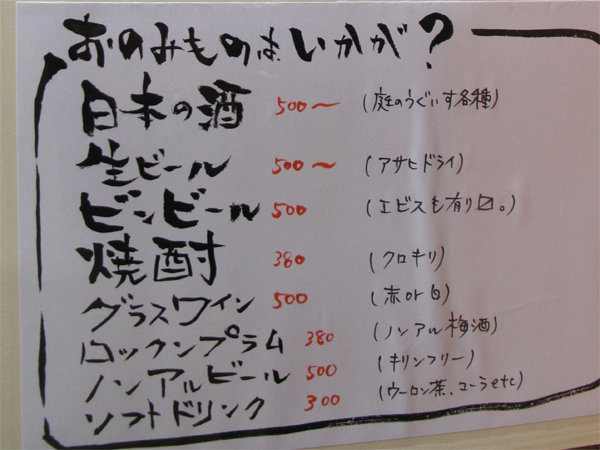 おのみものはいかが?
日本の酒 500～ (庭のうぐいす各種)
生ビール 500～ (アサヒドライ)
ビンビール 500 (エビスも有り〼。)
焼酎 380 (クロキリ)
グラスワイン 500 (赤or白)
ロックンプラム 380 (ノンアル梅酒)
ノンアルビール 500 (キリンフリー)
ソフトドリンク 300 (ウーロン茶、コーラetc)